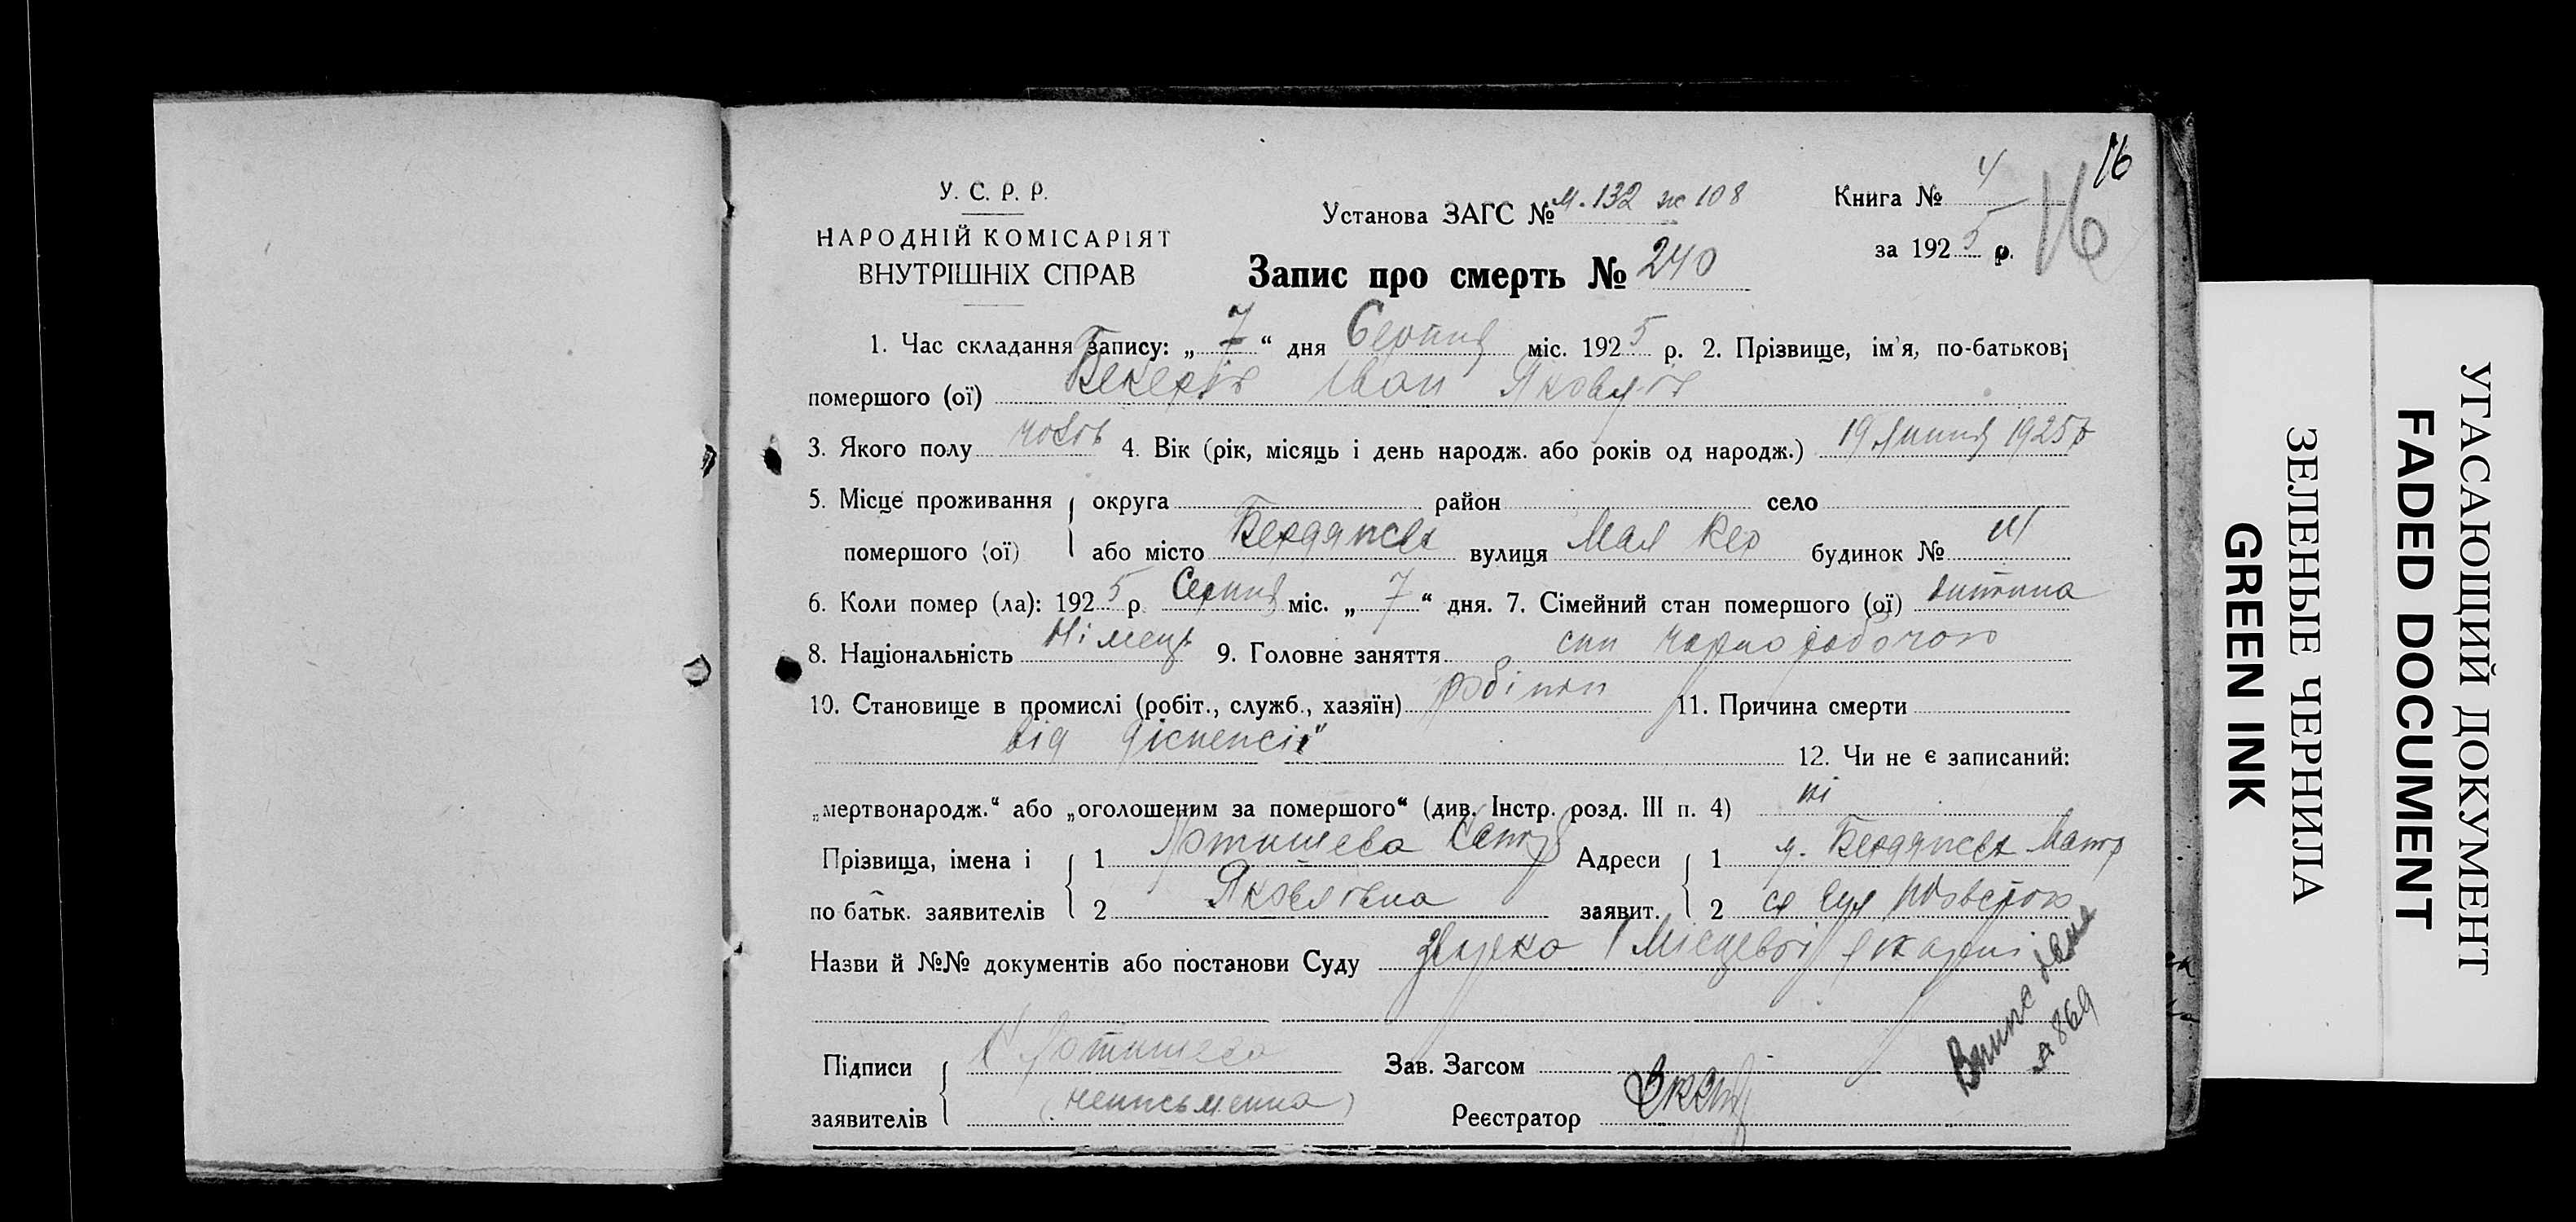 16
У. С. Р. Р.
НАРОДНІЙ КОМІСАРІЯТ
ВНУТРІШНІХ СПРАВ
Установа ЗАГС № м. 132 ж 108
Запис про смерть № 240
Книга № 4
за 1925 р.
16
1. Час складання запису: „7“ дня Серпня міс. 1925 р. 2. Прізвище, ім'я, по-батькові
помершого (ої) Іван
3. Якого полу чолов 4. Вік (рік, місяць і день народж. або років од народж.) 19 липня 1925 р
5. Місце проживання округа район село
помершого (ої) або місто Бердянськ вулиця Мал будинок №
6. Коли помер (ла): 1925 р. Серпня міс. „7“ дня. 7. Сімейний стан помершого (ої) дитина
8. Національність Німець 9. Головне заняття син чорноробочого
10. Становище в промислі (робіт., служб., хазяїн) робітн 11. Причина смерти
від діспепсії
12. Чи не є записаний:
„мертвонародж.“ або „оголошеним за помершого“ (див. Інстр. розд. III п. 4) ні
Прізвища, імена і 1 Адреси 1 м. Бердянськ
по батьк. заявителів 2 Яковлівна заявит. 2
Назви й №№ документів або постанови Суду Місцевої
Підписи
Зав. Загсом
заявителів (неписьменна)
Реєстратор
№ 869
УГАСАЮЩИЙ ДОКУМЕНТ
FADED DOCUMENT
ЗЕЛЕНЫЕ ЧЕРНИЛА
GREEN INK